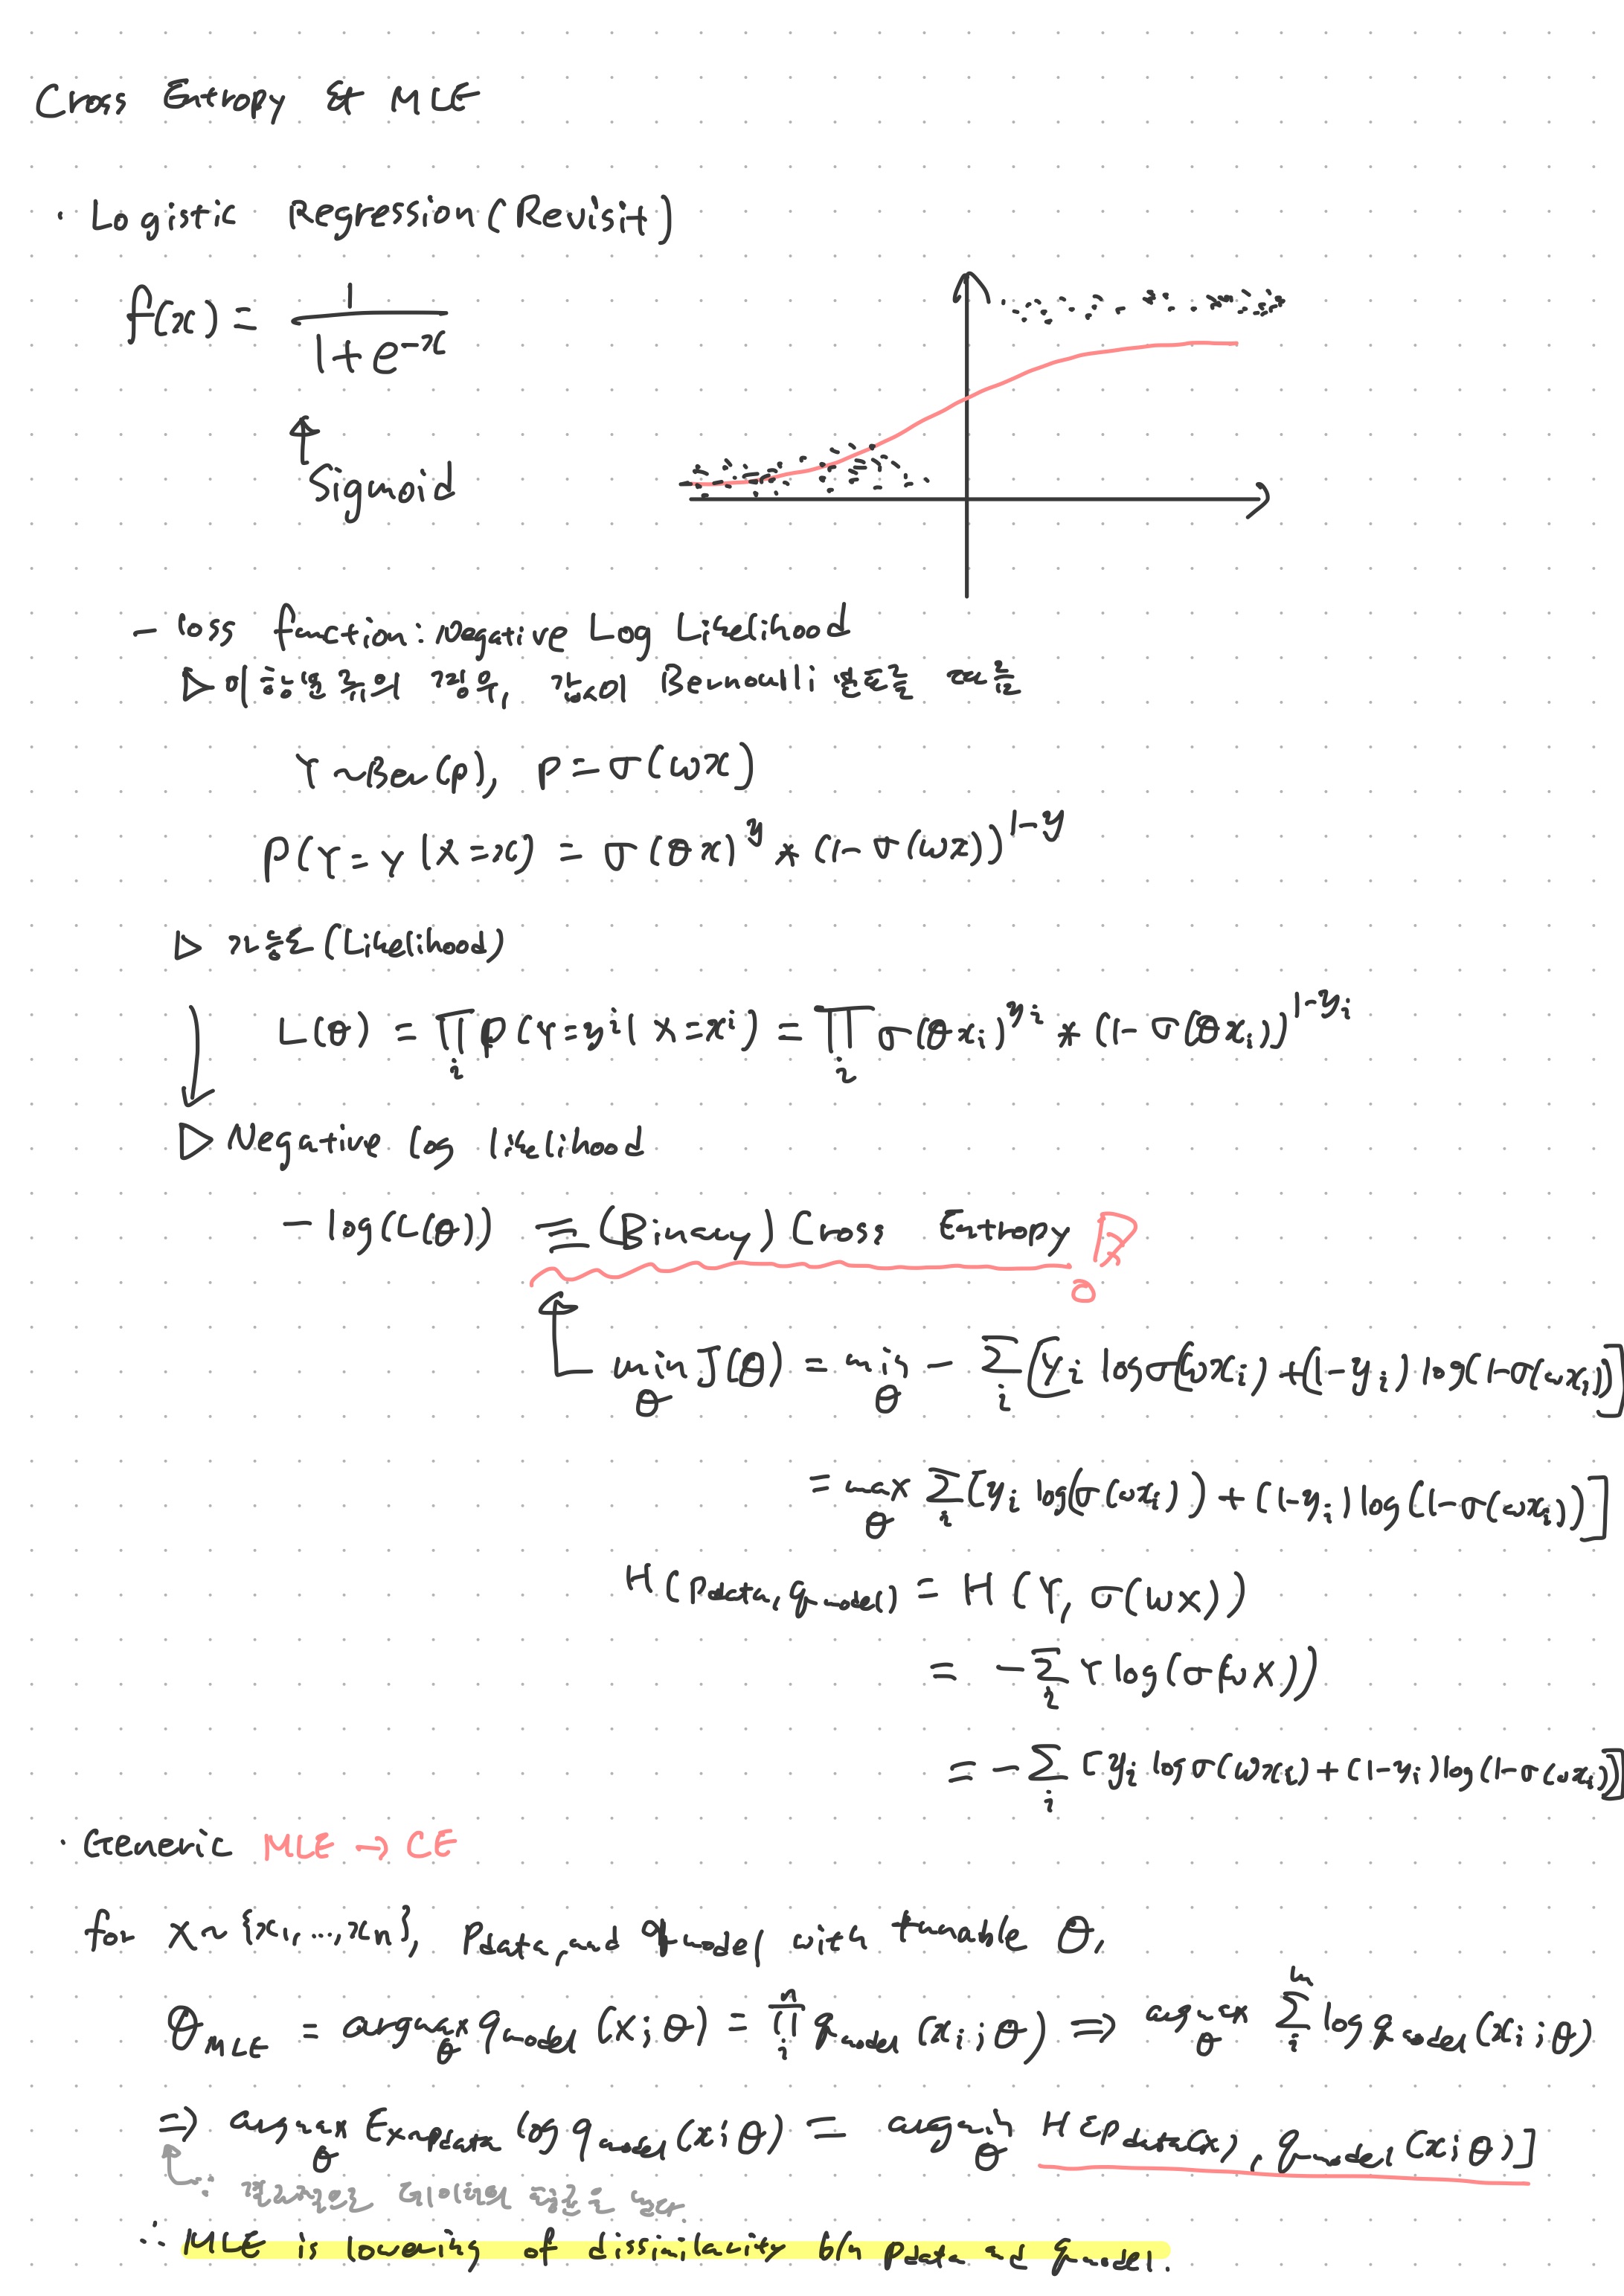 Cross Entropy & MLE
· Logistic Regression (Revisit)
f(x) = 1 / (1 + e^-x)
↑
Sigmoid
- loss function: Negative Log Likelihood
▷ 이항분류의 경우, 값이 Bernoulli 분포를 따름
Y ~ Ber(p), p = σ(ωx)
P(Y = y | X = x) = σ(θx)^y * (1 - σ(ωx))^1-y
▷ 가능도 (Likelihood)
L(θ) = ∏_i P(Y = y^i | X = x^i) = ∏_i σ(θx_i)^y_i * (1 - σ(θx_i))^1-y_i
▷ Negative log likelihood
- log(L(θ)) ≡ (Binary) Cross Entropy
min_θ J(θ) = min_θ - Σ_i [y_i log σ(ωx_i) + (1 - y_i) log(1 - σ(ωx_i))]
= max_θ Σ_i [y_i log(σ(ωx_i)) + (1 - y_i) log(1 - σ(ωx_i))]
H(P_data, q_model) = H(Y, σ(ωX))
= - Σ_i Y log(σ(ωX))
= - Σ_i [y_i log σ(ωx_i) + (1 - y_i) log(1 - σ(ωx_i))]
· Generic MLE → CE
for X ~ {x_1, ..., x_n}, P_data, and q_model with tunable θ,
θ_MLE = argmax_θ q_model(X; θ) = ∏_i^n q_model(x_i; θ) ⇒ argmax_θ Σ_i^n log q_model(x_i; θ)
⇒ argmax_θ E_x~pdata log q_model(x; θ) = argmin_θ H[P_data(x), q_model(x; θ)]
∵ 결과적으로 데이터의 평균은 같다.
∴ MLE is lowering of dissimilarity b/n Pdata and qmodel.